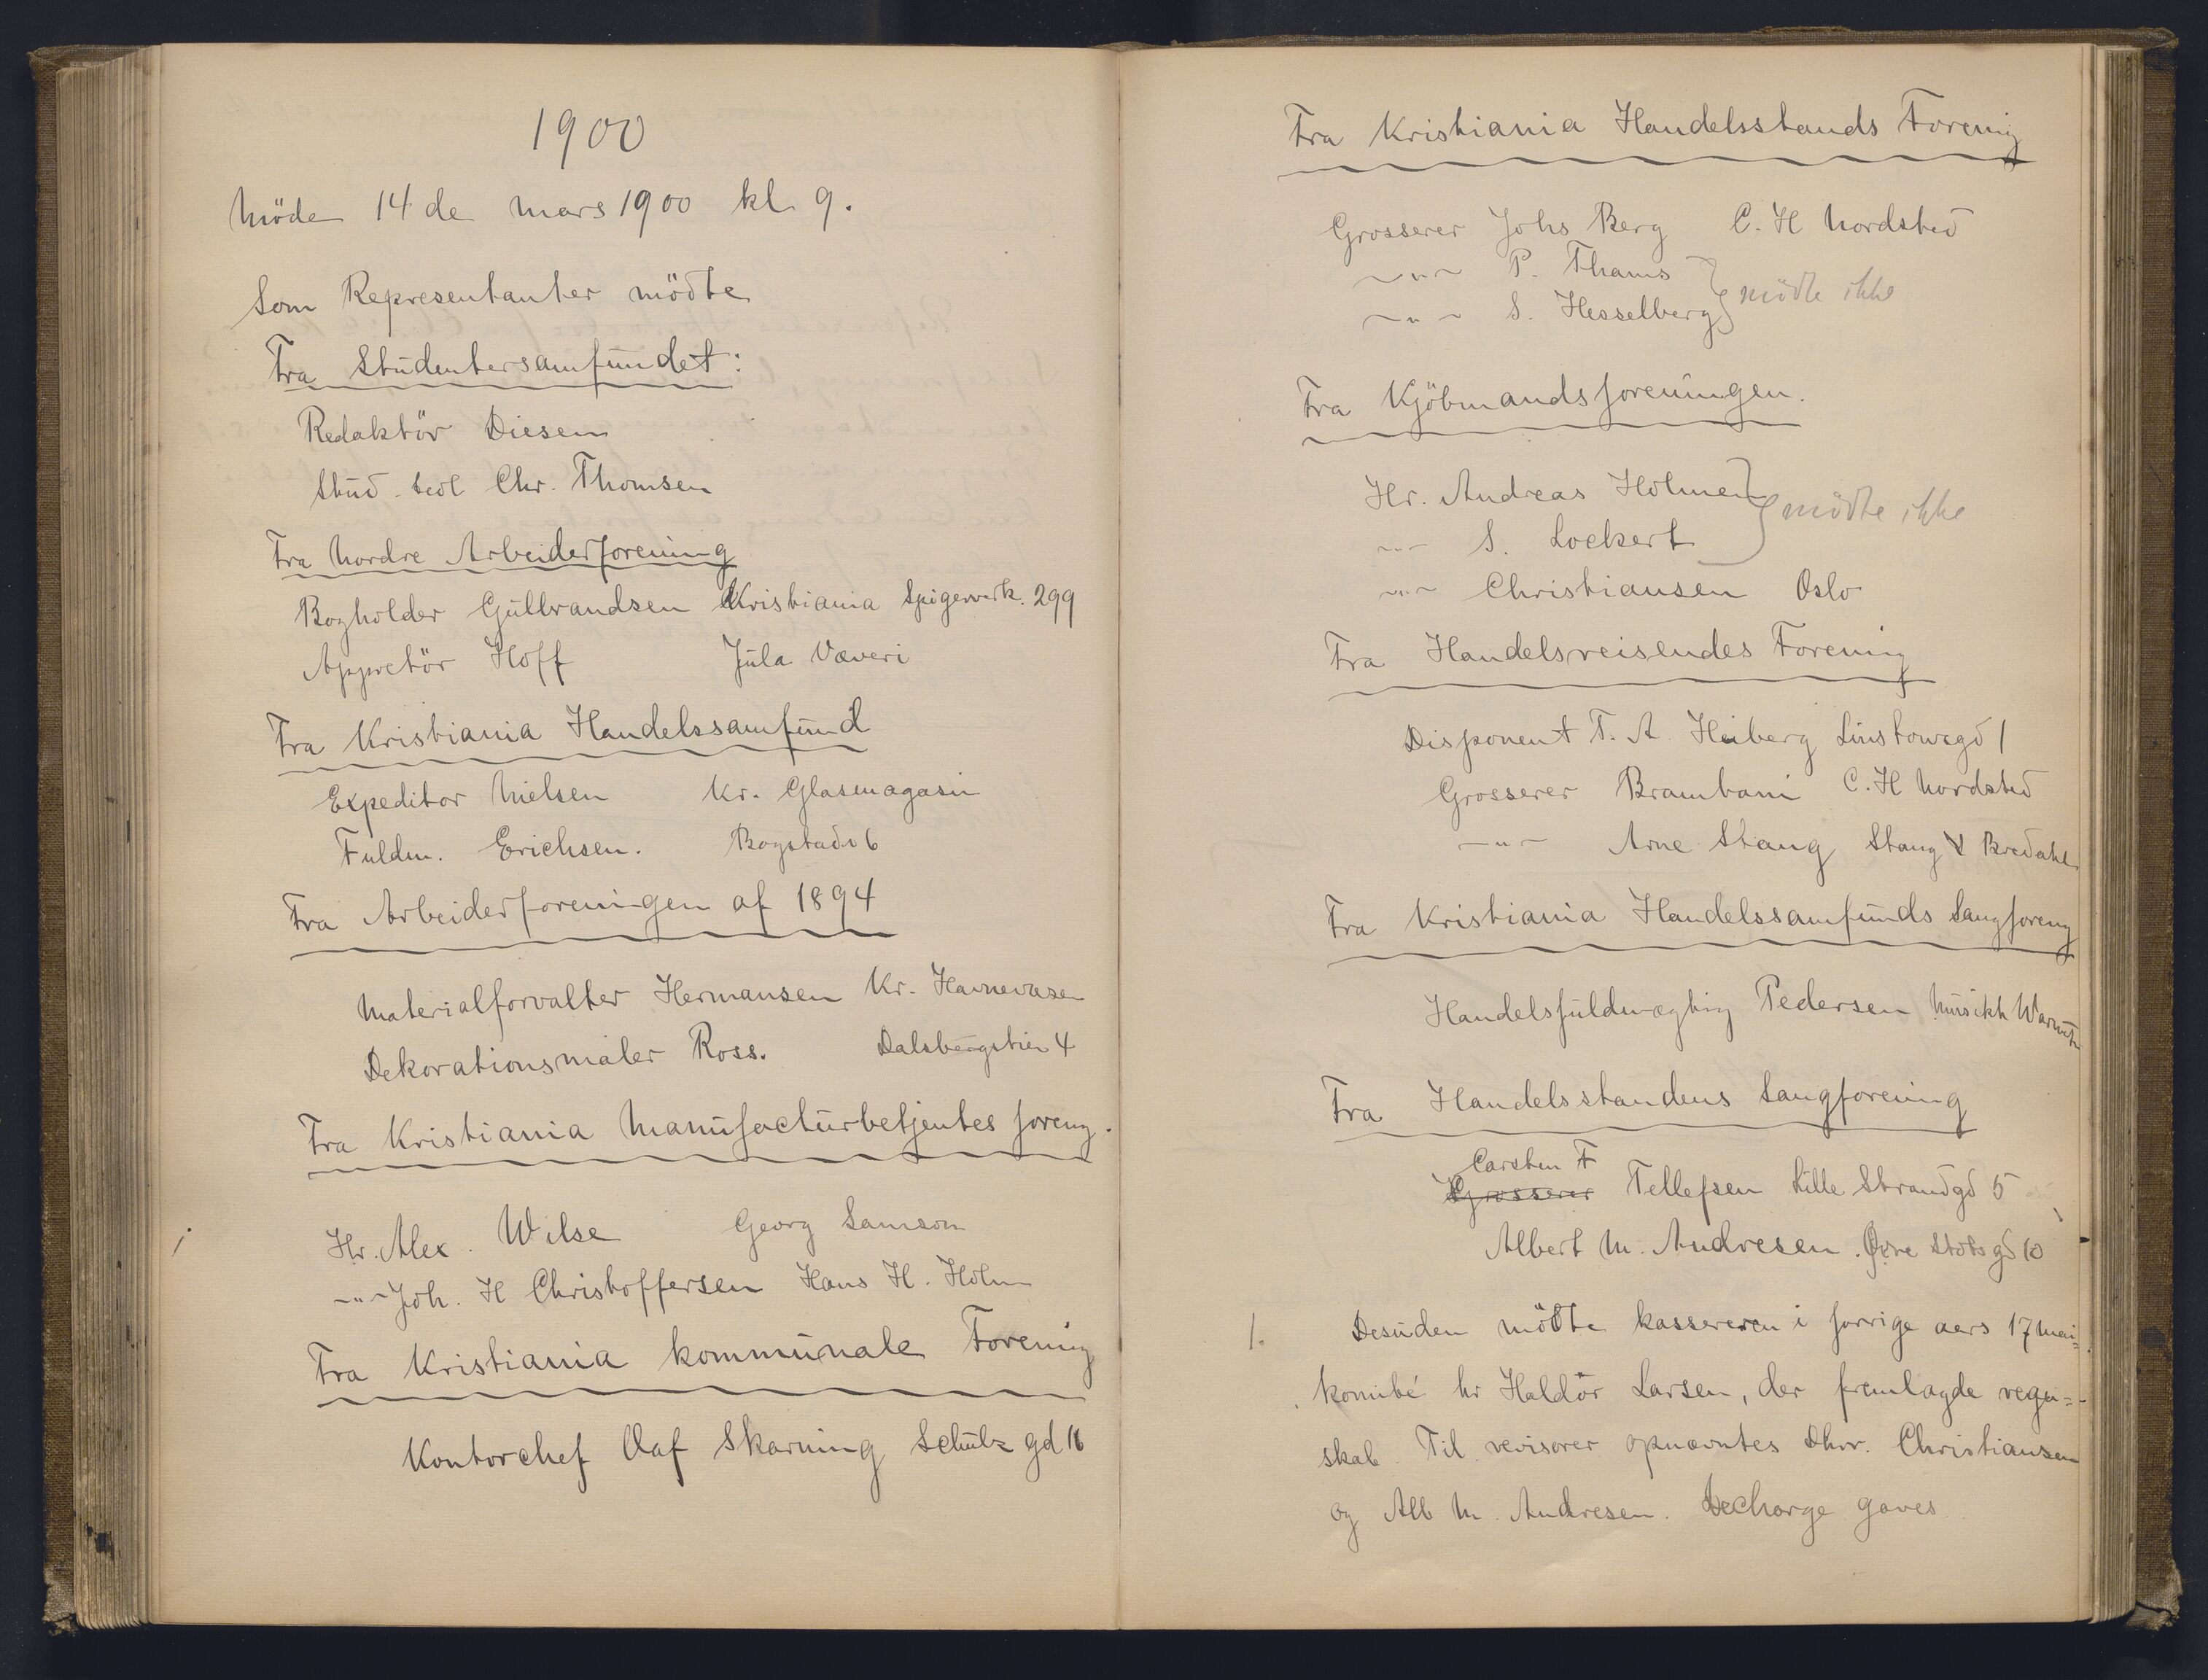 1900
Möde 14de mars 1900 kl 9.
Som Representanter mödte
Fra Studentersamfundet:
Redaktör Diesen
Stud. Chr. Thomsen
Fra Nordre Arbeiderforening
Bogholder Gulbrandsen Kristiania Spigerverk. 299
Appretör Hoff Jula Væveri
Fra Kristiania Handelssamfund
Expeditor Nielsen Kr. Glasmagasin
Fuldm. Erichsen. Bogstadv 6
Fra Arbeiderforeningen af 1894
Materialforvalter Hermansen Kr. Havnevæsen
Dekorationsmaler Ross. Dalsbergstien 4
Fra Kristiania Manufacturbetjentes foreng.
Hr. Alex. Wilse Georg Samson
-"- Joh. H Christoffersen Hans H. Holm
Fra Kristiania kommunale Forening
Kontorchef Olaf Skarning Schulz gd 16
Fra Kristiania Handelsstands Forening
Grosserer Johs Berg C. H Nordsted
-"- P. Thams
-"- S. Hesselberg } mödte ikke
Fra Kjöbmandsforeningen.
Hr. Andreas Holmen
-"- S. Lockert } mödte ikke
-"- Christiansen Oslo
Fra Handelsreisendes Forening
Disponent T. A. Heiberg Linstowsgd 1
Grosserer Brambani C. H Nordsted
-"- Arne Stang Stang & Bredahl
Fra Kristiania Handelssamfunds Sangforeng
Handelsfuldmægtig Pedersen Musikh Warmuth
Fra Handelsstandens Sangforening
Carsten F
Grosserer Tellefsen Lille Strandgd 5
Albert M. Andresen. Övre Slotsgd 10
1. Desuden mödte kassereren i forrige aars 17 mai=
komité hr Haldor Larsen, der fremlagde regn=
skab. Til revisorer opnævntes Dhrr. Christiansen
og Alb M. Andresen. Decharge gaves